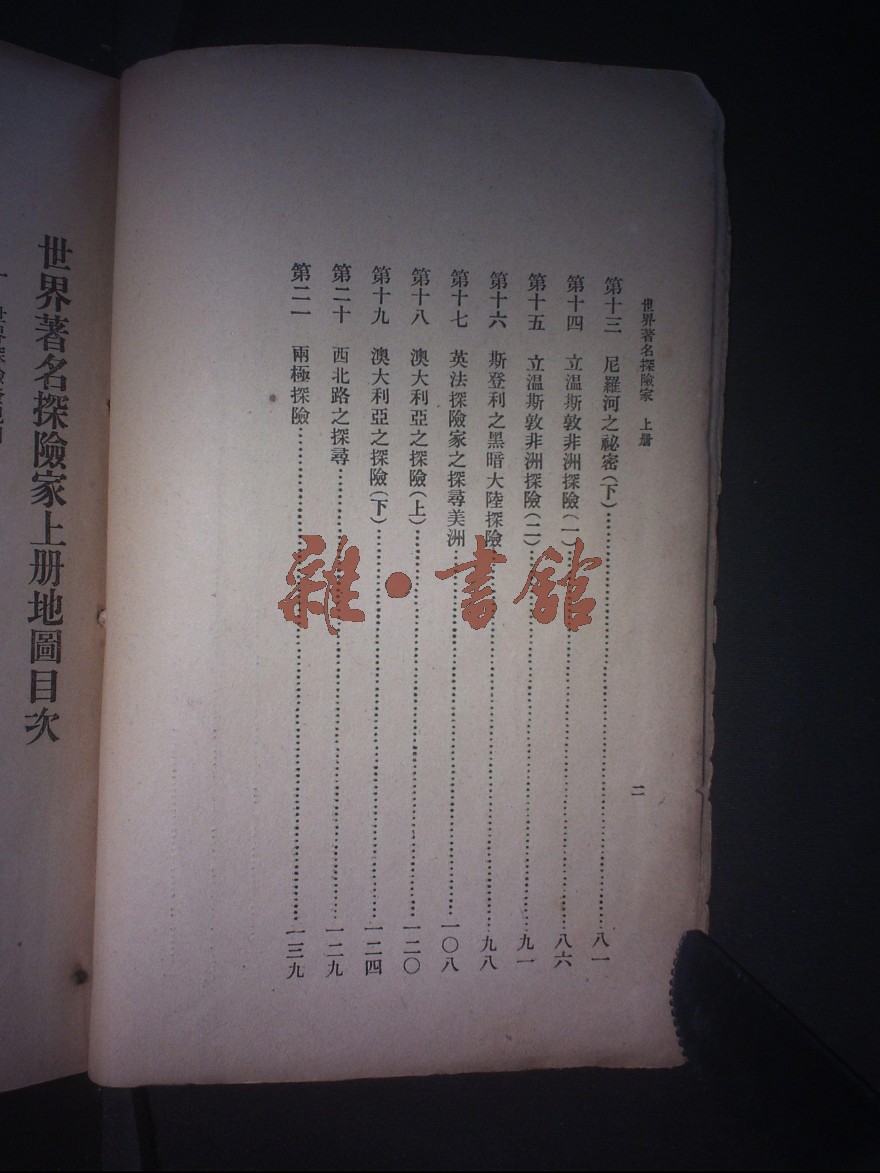 世界著名探險家 上册
二
第十三 尼羅河之祕密(下)……八一
第十四 立溫斯敦非洲探險(一)……八六
第十五 立溫斯敦非洲探險(二)……九一
第十六 斯登利之黑暗大陸探險……九八
第十七 英法探險家之探尋美洲……一〇八
第十八 澳大利亞之探險(上)……一二〇
第十九 澳大利亞之探險(下)……一二四
第二十 西北路之探尋……一二九
第二一 兩極探險……一三九
世界著名探險家上册地圖目次
雜·書館